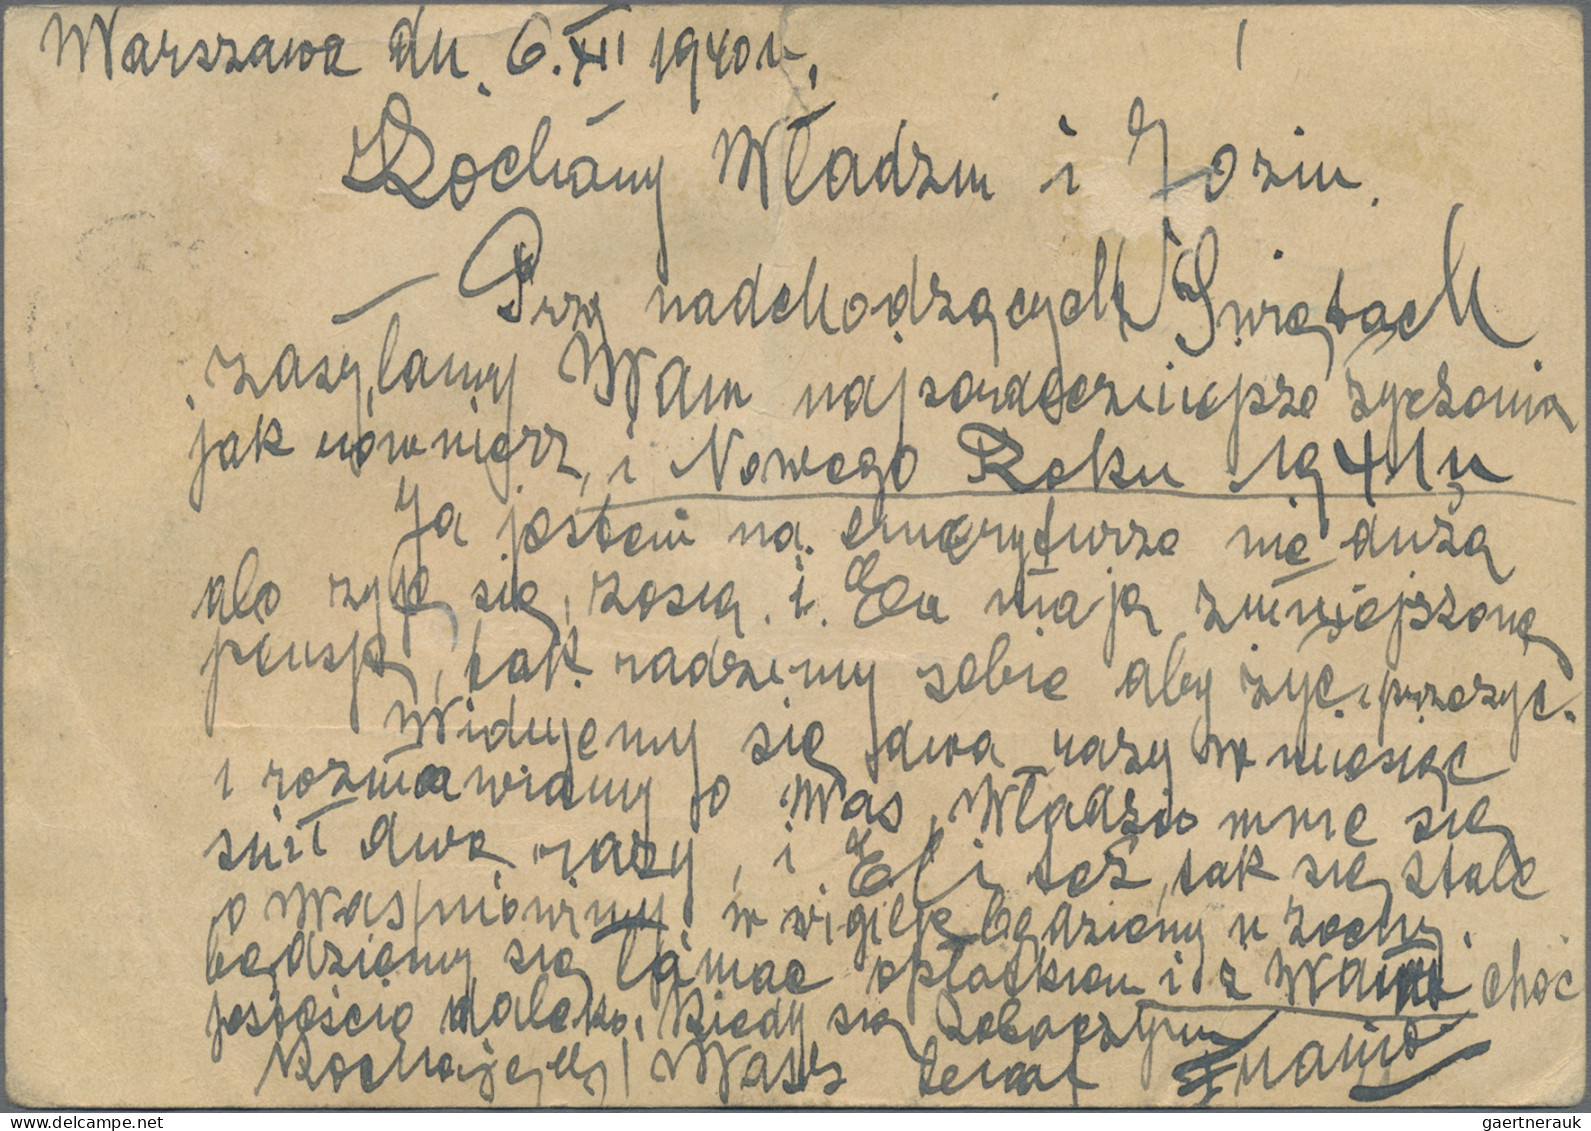 Warszawa dn. 6.XII 1940 r.
Kochany Władziu i Joziu.
Przy nadchodzących Świętach
zasyłamy Wam najserdeczniejsze życzenia
jak równierz, i Nowego Roku 1941 r
Ja jestem na emeryturze nie dużą
ale żyję się, Zosią i Ela mają zmniejszoną
pensję, tak radziemy sobie aby żyć i przeżyć.
Widujemy się dwa razy w miesiąc
i rozmawiamy o Was, Władziu mnie się
śnił dwa razy, i Eli też, tak się stale
o Was mówimy w wigilję będziemy u Zochy
będziemy się łamać opłatkiem i z Wami choć
jesteście daleko. Kiedy się zobaczym
Kochający Was
gaertnerauk